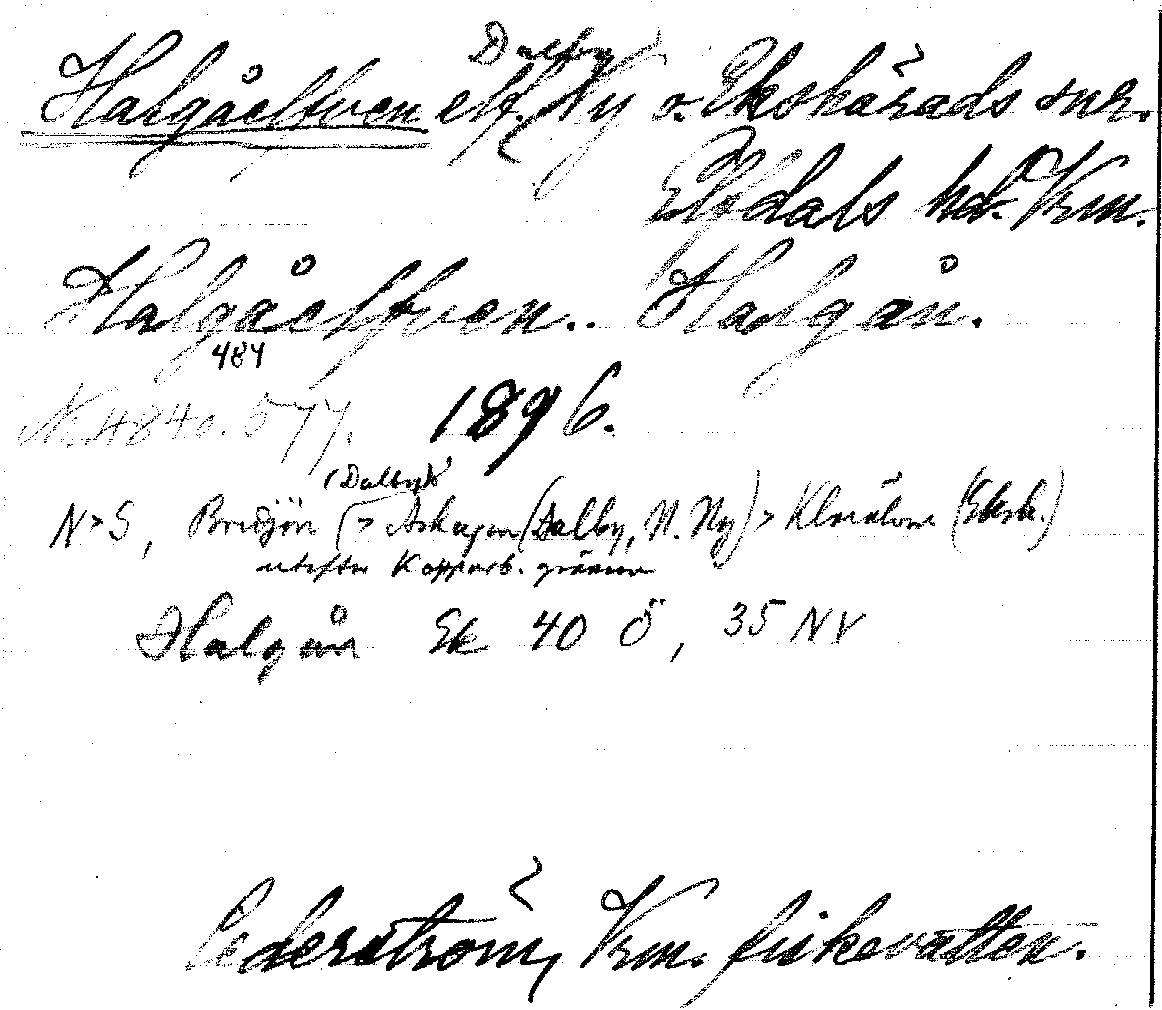 Dalby
Halgåelfven elf. Ny o. Ekshärads snr.
Elfdals hd. Vrm.
Halgåelfven.. Halgån.
484
N. 484o. 577. 1896.
(Dalby)
N>S, Bredsjön (> Askagen (Dalby, N. Ny) > Klarälven (Eksh.)
utefter Kopparb. gränsen
Halgån Ek 40 Ö, 35 NV
Cederström, Vrm. fiskevatten.